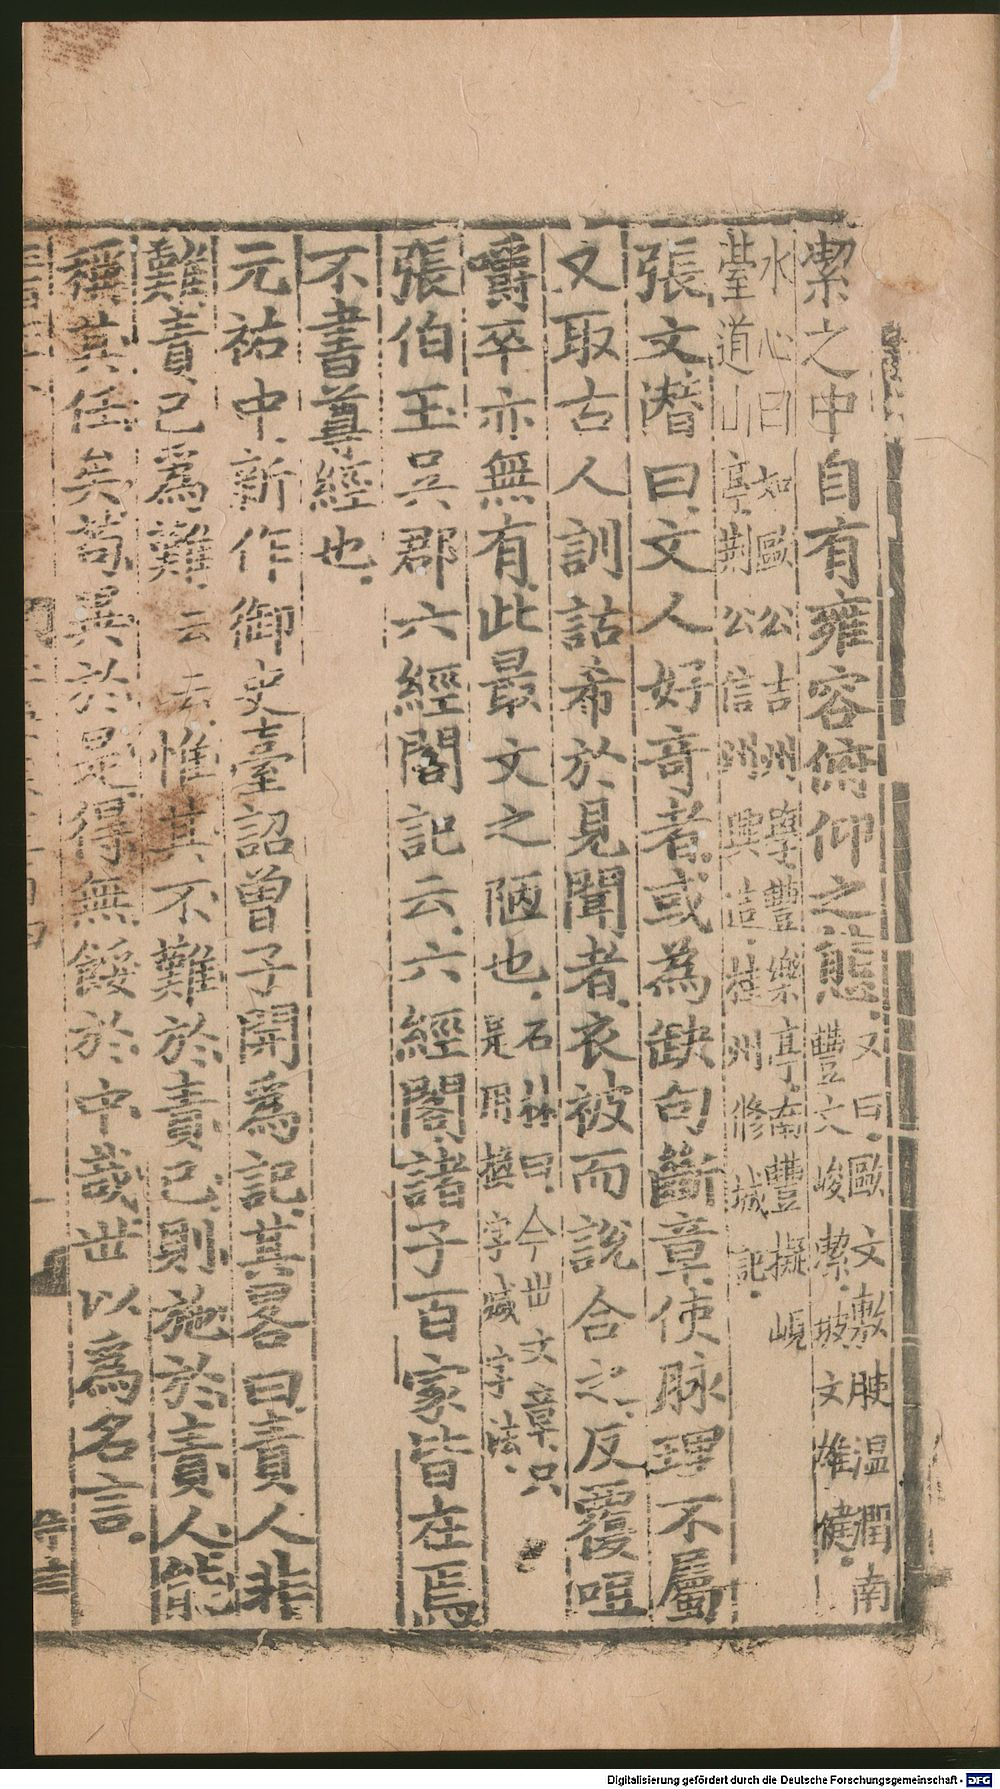 潔之中自有雍容俯仰之態又曰歐文敷腴温潤南
豐文峻潔坡文雄健
水心曰如歐公吉州學豐樂亭南豐擬峴
臺道山亭荆公信州興造桂州修城記
張文潛曰文人好奇者或為缺句斷章使脉理不屬
又取古人訓詁希於見聞者衣被而說合之反覆咀
嚼卒亦無有此最文之陋也石林曰今世文章只
是用換字減字法
張伯玉吳郡六經閣記云六經閣諸子百家皆在焉
不書尊經也
元祐中新作御史臺詔曾子開爲記其畧曰責人非
難責己爲難云云惟其不難於責己則施於責人能
稱其任矣苟異於是得無餒於中哉世以爲名言
Digitalisierung gefördert durch die Deutsche Forschungsgemeinschaft - DFG